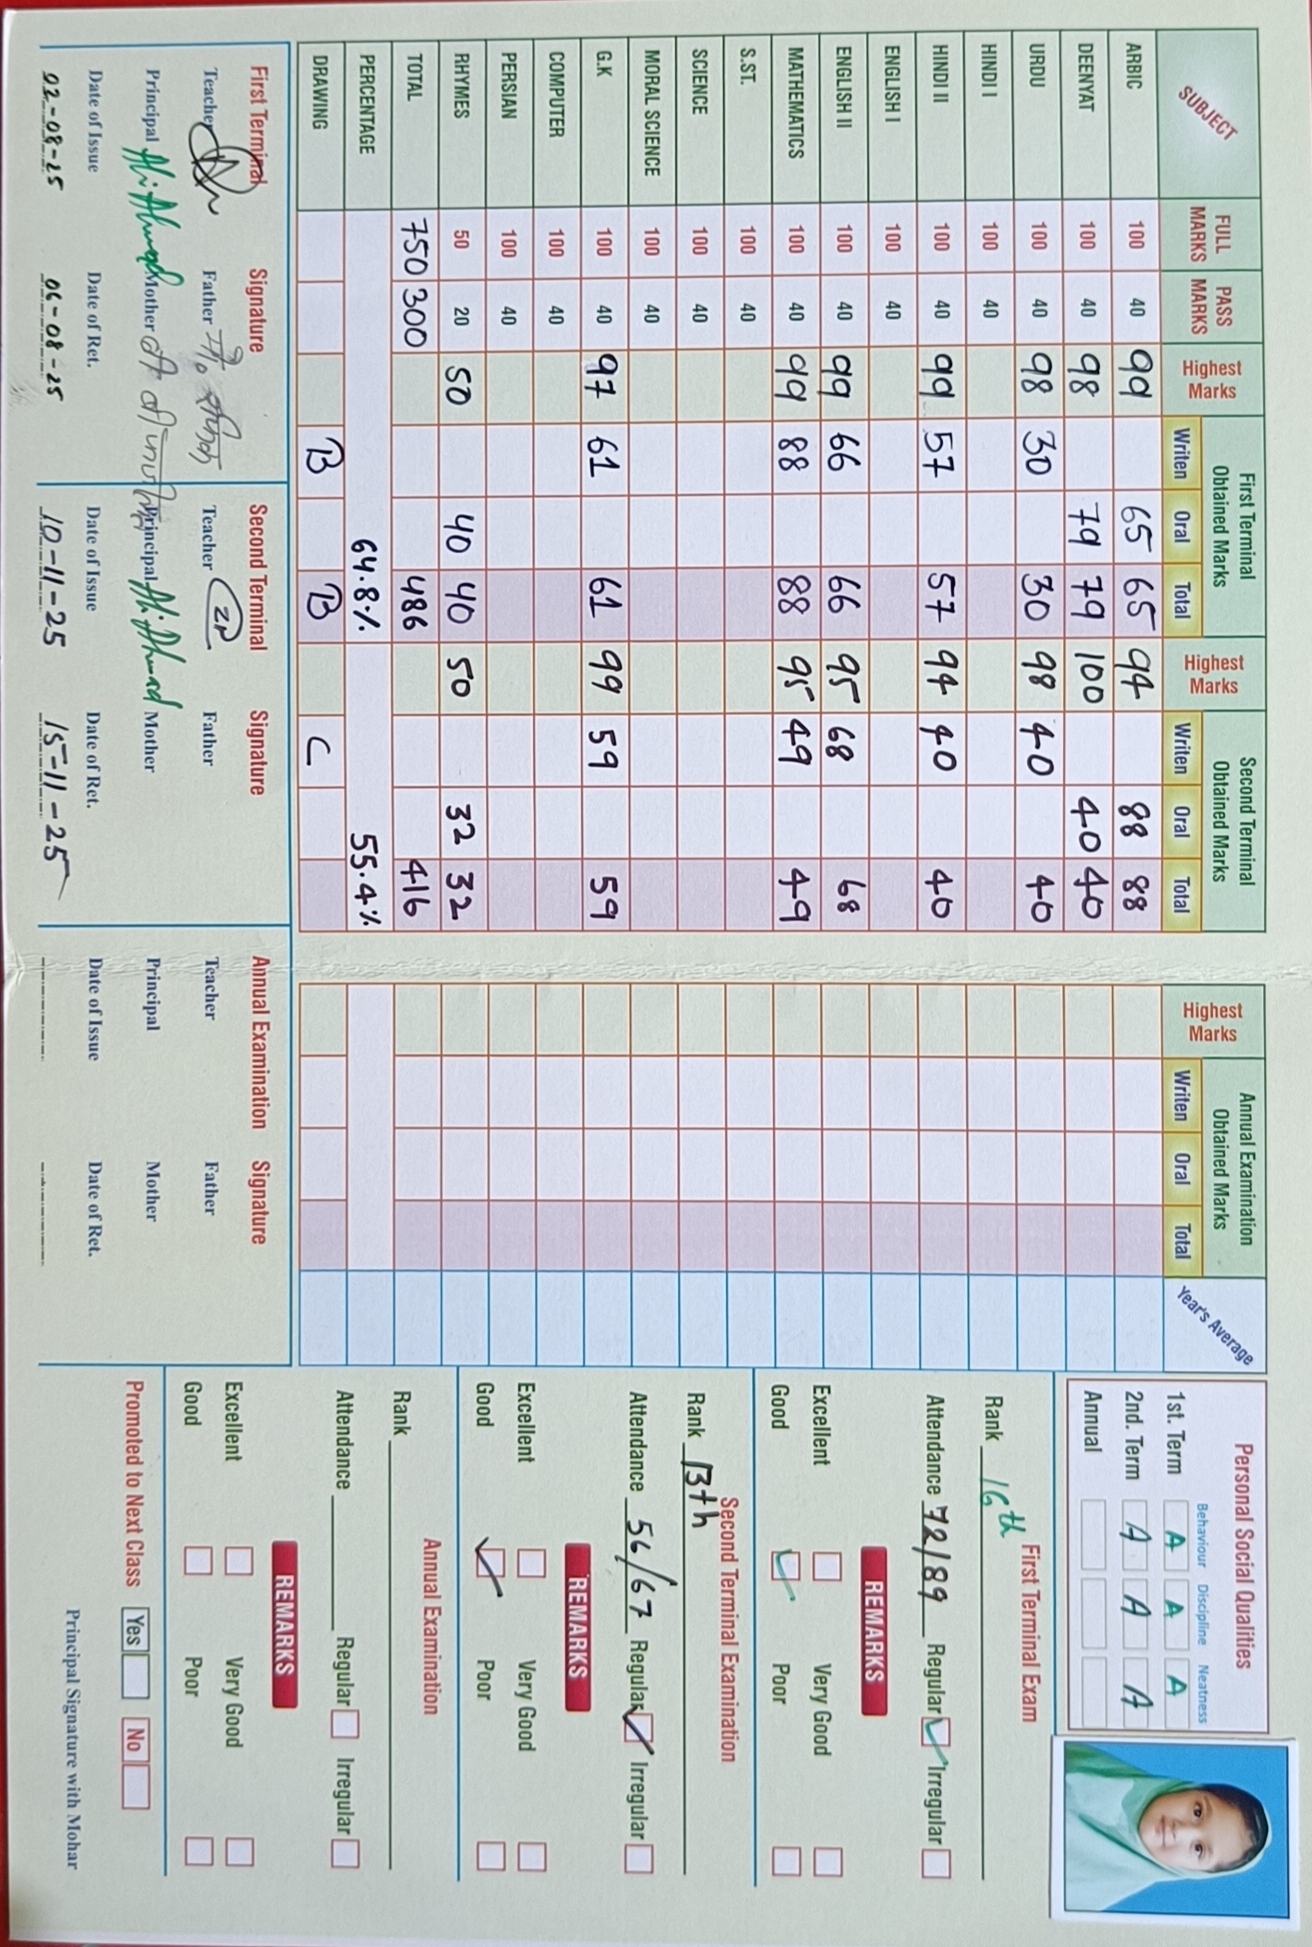 SUBJECT FULL MARKS PASS MARKS Highest Marks First Terminal Obtained Marks Writen Oral Total Highest Marks Second Terminal Obtained Marks Writen Oral Total Highest Marks Annual Examination Obtained Marks Writen Oral Total Year's Average
ARBIC 100 40 99 65 65 94 88 88
DEENYAT 100 40 98 79 79 100 40 40
URDU 100 40 98 30 30 98 40 40
HINDI I 100 40
HINDI II 100 40 99 57 57 94 40 40
ENGLISH I 100 40
ENGLISH II 100 40 99 66 66 95 68 68
MATHEMATICS 100 40 99 88 88 95 49 49
S.ST. 100 40
SCIENCE 100 40
MORAL SCIENCE 100 40
G.K 100 40 97 61 61 99 59 59
COMPUTER 100 40
PERSIAN 100 40
RHYMES 50 20 50 40 40 50 32 32
TOTAL 750 300 486 416
PERCENTAGE 64.8% 55.4%
DRAWING B B C
First Terminal Signature
Teacher Father
Principal Ali Ahmad Mother
Date of Issue Date of Ret.
02-08-25 06-08-25
Second Terminal Signature
Teacher Father
Principal Ali Ahmad Mother
Date of Issue Date of Ret.
10-11-25 15-11-25
Annual Examination Signature
Teacher Father
Principal Mother
Date of Issue Date of Ret.
Personal Social Qualities
Behaviour Discipline Neatness
1st. Term A A A
2nd. Term A A A
Annual
First Terminal Exam
Rank 16th
Attendance 72/89 Regular Irregular
REMARKS
Excellent Very Good
Good Poor
Second Terminal Examination
Rank 13th
Attendance 56/67 Regular Irregular
REMARKS
Excellent Very Good
Good Poor
Annual Examination
Rank
Attendance Regular Irregular
REMARKS
Excellent Very Good
Good Poor
Promoted to Next Class Yes No
Principal Signature with Mohar